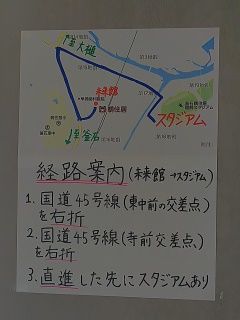 至大槌
未来館
鵜住居
スタジアム
至釜石
経路案内(未来館→スタジアム)
1. 国道45号線(東中前の交差点)
を右折
2. 国道45号線(寺前交差点)
を右折
3. 直進した先にスタジアムあり